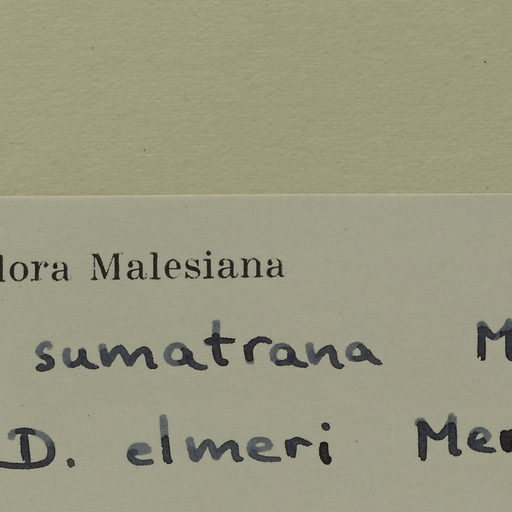 lora Malesiana
sumatrana M
D. elmeri Mer